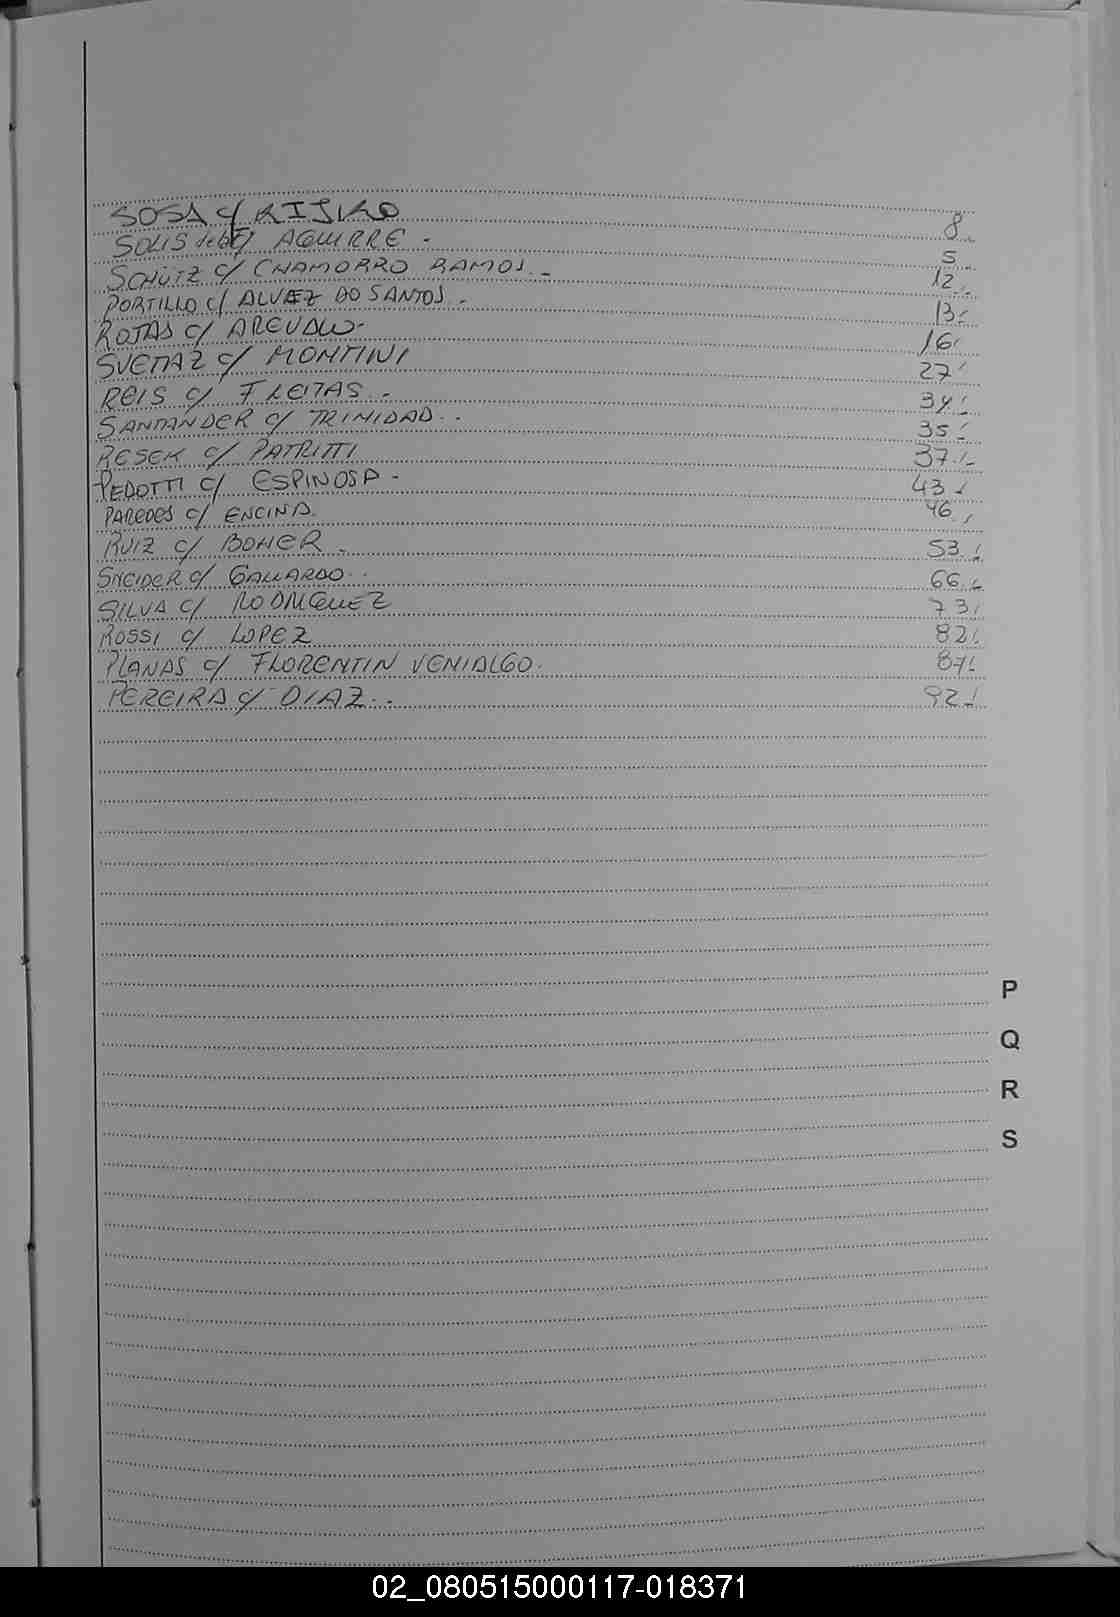 SOSA c/
SOLIS de c/ AGUIRRE - 5
SCHÜTZ c/ CHAMORRO RAMOS.- 12.-
PORTILLO c/ ALVEZ DO SANTOS.- 13.-
ROJAS c/ AREVALO.- 16.-
SVETAZ c/ MONTINI 27.-
REIS c/ FREITAS.- 34.-
SANTANDER c/ TRINIDAD.- 35.-
RESEK c/ PATRITTI 37.-
PEDOTTI c/ ESPINOSA.- 43.-
PAREDES c/ ENCINA. 46.-
RUIZ c/ BOHER.- 53.-
SNEIDER c/ GALLARDO.- 66.-
SILVA c/ RODRIGUEZ 73.-
ROSSI c/ LOPEZ 82.-
PLANAS c/ FLORENTIN VENIALGO. 87.-
PEREIRA c/ DIAZ.- 92.-
P
Q
R
S
02_080515000117-018371